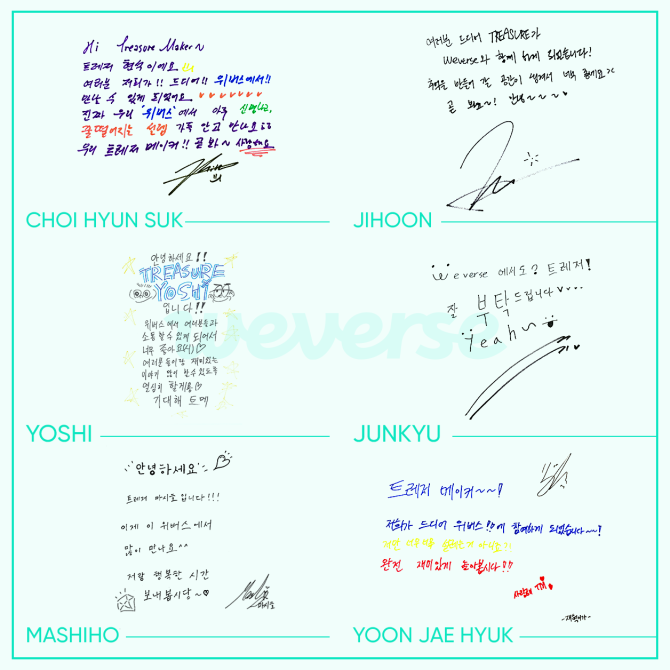 Hi Treasure Maker~
트레저 현석이에요
여러분 저희가!! 드디어!! 위버스에서!!
만날 수 있게 되었어요
진짜 우리 '위버스'에서 아주 신명나고,
줄떨어지는 선물 가득 안고 만나요
우리 트레저 메이커!! 곧 봐~ 사랑해요
CHOI HYUN SUK
여러분 드디어 TREASURE가
Weverse와 함께 하게 되었습니다!
추억을 만들어 갈 공간이 생겨서 너무 좋네요
곧 봐요~! 안녕~~~
JIHOON
안녕하세요!!
TREASURE
YOSHI
입니다!!
위버스에서 여러분들과
소통할 수 있게 되어서
너무 좋아요
여러분들이랑 재미있는
이야기 많이 할 수 있도록
열심히 할게용
기대해 트메
YOSHI
weverse
Weverse 에서도? 트레저!
잘 부탁드립니다
Yeah~
JUNKYU
안녕하세요
트레저 마시호입니다!!!
이제 이 위버스에서
많이 만나요^^
저랑 행복한 시간
보내봅시당~
마시호
MASHIHO
트레저 메이커~~!
저희가 드디어 위버스!!에 참여하게 되었습니다~~!
완전 재미있게 놀아봅시다!!
사랑해 TM
-재혁이가-
YOON JAE HYUK